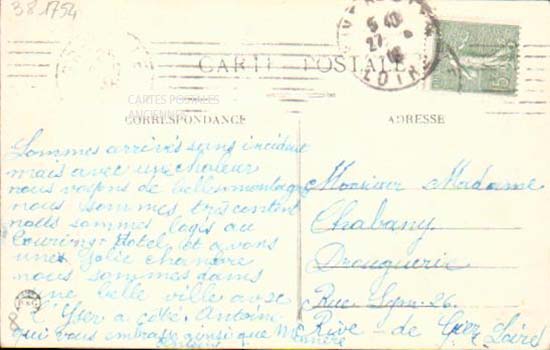 381754
CARTE POSTALE
CARTES POSTALES
ANCIENNES
CORRESPONDANCE
ADRESSE
LOIRE
Sommes arrivés sans incident
mais avec une chaleur
nous voyons de belles montagnes
nous sommes très content
nous sommes logis au
Touring-Hotel et avons
une jolie chambre
nous sommes dans
une belle ville avec
l'Yser a côté. Antoine
qui vous embrasse ainsi que
Monsieur Madame
Chabany
Droguerie
Rue Lym. 26.
Rive-de Gier Loire